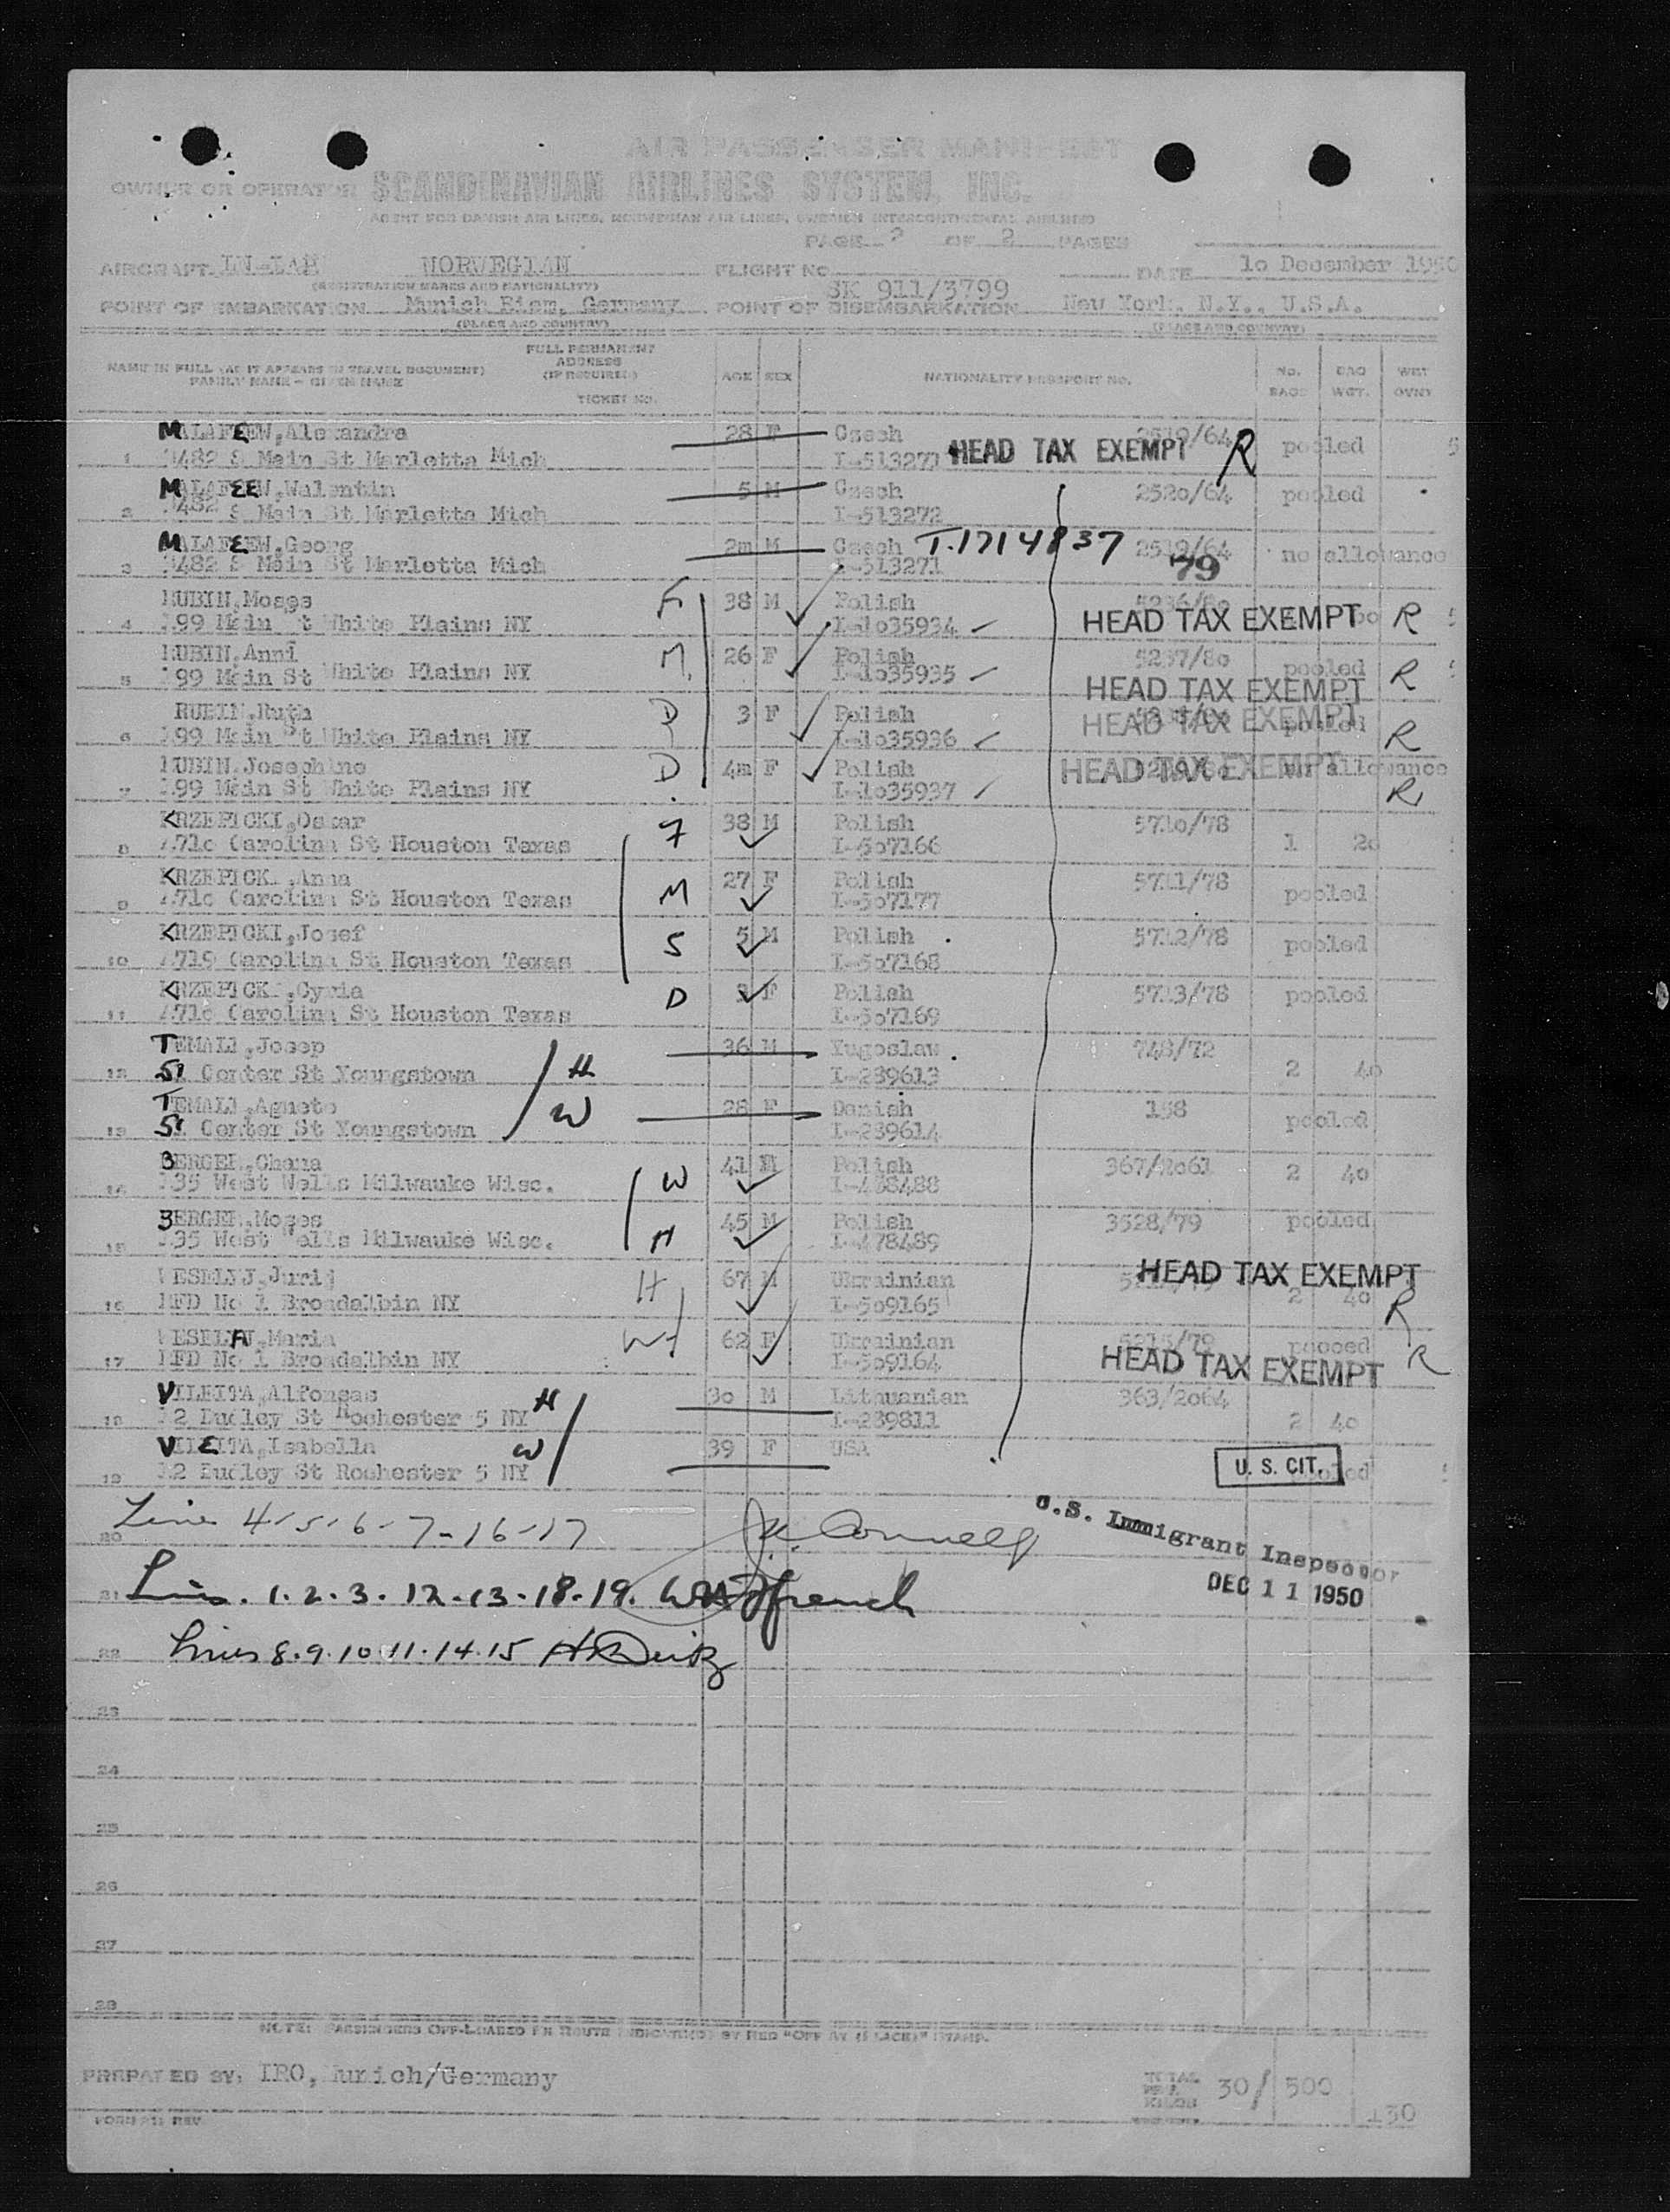 AIR PASSENGER MANIFEST
OWNER OR OPERATOR SCANDINAVIAN AIRLINES SYSTEM, INC.
AGENT FOR DANISH AIR LINES, NORWEGIAN AIR LINES, SWEDISH INTERCONTINENTAL AIRLINES
PAGE 2 OF 2 PAGES
AIRCRAFT NORWEGIAN FLIGHT NO. SK 911/3799 DATE 10 December 1950
(REGISTRATION MARKS AND NATIONALITY)
POINT OF EMBARKATION Munich Riem, Germany POINT OF DISEMBARKATION New York, N.Y., U.S.A.
(PLACE AND COUNTRY) (PLACE AND COUNTRY)
NAME IN FULL (AS IT APPEARS IN TRAVEL DOCUMENT) FAMILY NAME - GIVEN NAME FULL PERMANENT ADDRESS (IF REQUIRED) TICKET NO. AGE SEX NATIONALITY PASSPORT NO. No. BAGS BAG WGT. WGT OVNT
MALAFEEW, Alexandra 28 F Czech 2519/64 pooled 5
1 482 S Main St Marletta Mich I-513271 HEAD TAX EXEMPT R
MALAFEEW, Walentin 5 M Czech 2520/64 pooled
2 482 S Main St Marletta Mich I-513272
MALAFEEW, Georg 2m M Czech T.1714837 2519/64 no allowance
3 482 S Main St Marletta Mich I-513271 79
RUBIN, Moses F 38 M Polish
4 199 Main St White Plains NY I-1035934 HEAD TAX EXEMPT R
RUBIN, Anni M 26 F Polish 5237/80 pooled
5 199 Main St White Plains NY I-1035935 HEAD TAX EXEMPT R
RUBIN, Ruth D 3 F Polish pooled
6 199 Main St White Plains NY I-1035936 HEAD TAX EXEMPT R
RUBIN, Josephine D 4m F Polish no allowance
7 199 Main St White Plains NY I-1035937 HEAD TAX EXEMPT R
KRZEPICKI, Oskar F 38 M Polish 5710/78
8 Carolina St Houston Texas I-507166 1 20
KRZEPICKI, Anna M 27 F Polish 5711/78
9 Carolina St Houston Texas I-507177 pooled
KRZEPICKI, Josef S 5 M Polish 5712/78
10 Carolina St Houston Texas I-507168 pooled
KRZEPICKI, Cyria D 3 F Polish 5713/78 pooled
11 Carolina St Houston Texas I-507169
TEMALI, Josep 36 M Yugoslaw 748/72
12 51 Center St Youngstown H I-239613 2 40
TEMALI, Agnete W 28 F Danish 158
13 51 Center St Youngstown I-239614 pooled
BERGER, Chana W 41 Polish 367/2061
14 135 West Wells Milwauke Wisc. 2 40
BERGER, Moses 45 M Polish 3528/79 pooled
15 135 West Wells Milwauke Wisc. H I-478489
WESELYJ, Jurij H 67 M Ukrainian HEAD TAX EXEMPT
16 RFD No 1 Broadalbin NY I-509165 2 40 R
WESELYAJ, Maria Wf 62 F Ukrainian 5215/79 pooced
17 RFD No 1 Broadalbin NY I-509164 HEAD TAX EXEMPT R
VILEITA, Alfonsas H 30 M Lithuanian 363/2064
18 12 Dudley St Rochester 5 NY I-239811 2 40
VILEITA, Isabella W 39 F USA
19 12 Dudley St Rochester 5 NY U. S. CIT. pooled
20 Line 4-5-6-7-16-17 U.S. Immigrant Inspector
21 Lines. 1.2.3.12.13.18.19. French DEC 11 1950
22 Lines 8.9.10.11.14.15
23
24
25
26
27
28
NOTE: PASSENGERS OFF-LOADED EN ROUTE INDICATED BY RED "OFF AT (PLACE)" STAMP.
PREPARED BY: IRO, Munich/Germany TOTAL KILOS 30/ 500
130
FORM REV